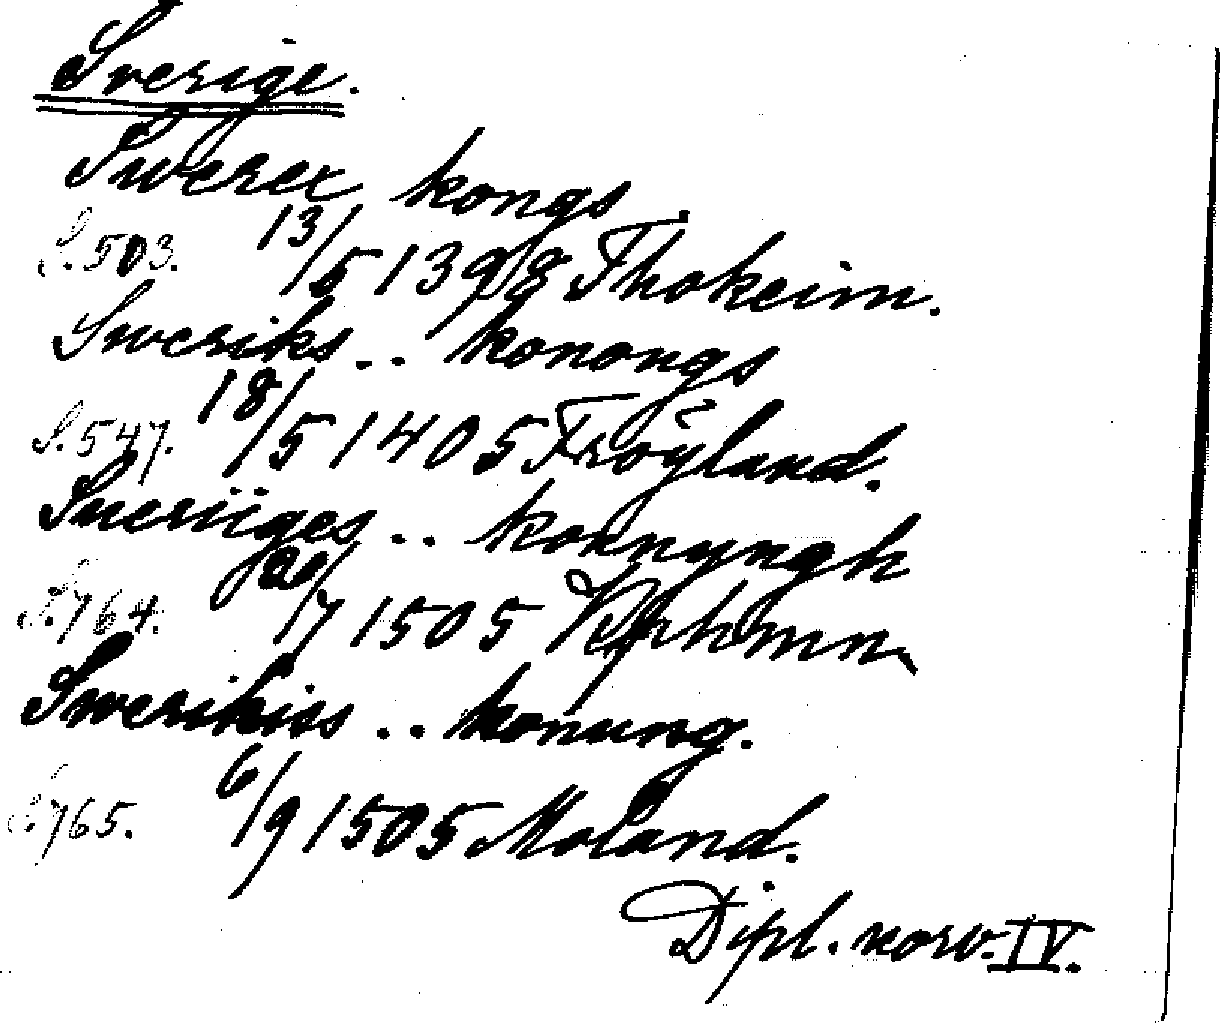 Sverige.
Swerex kongs
S. 503. 13/5 1398 Thokeim.
Sweriks .. konongs
S. 547. 18/5 1405 Fröyland.
Sueriiges .. konnyngh
S. 764. 20/7 1505
Swerikiss .. konung.
S. 765. 6/9 1505 Moland.
Dipl. norv. IV.